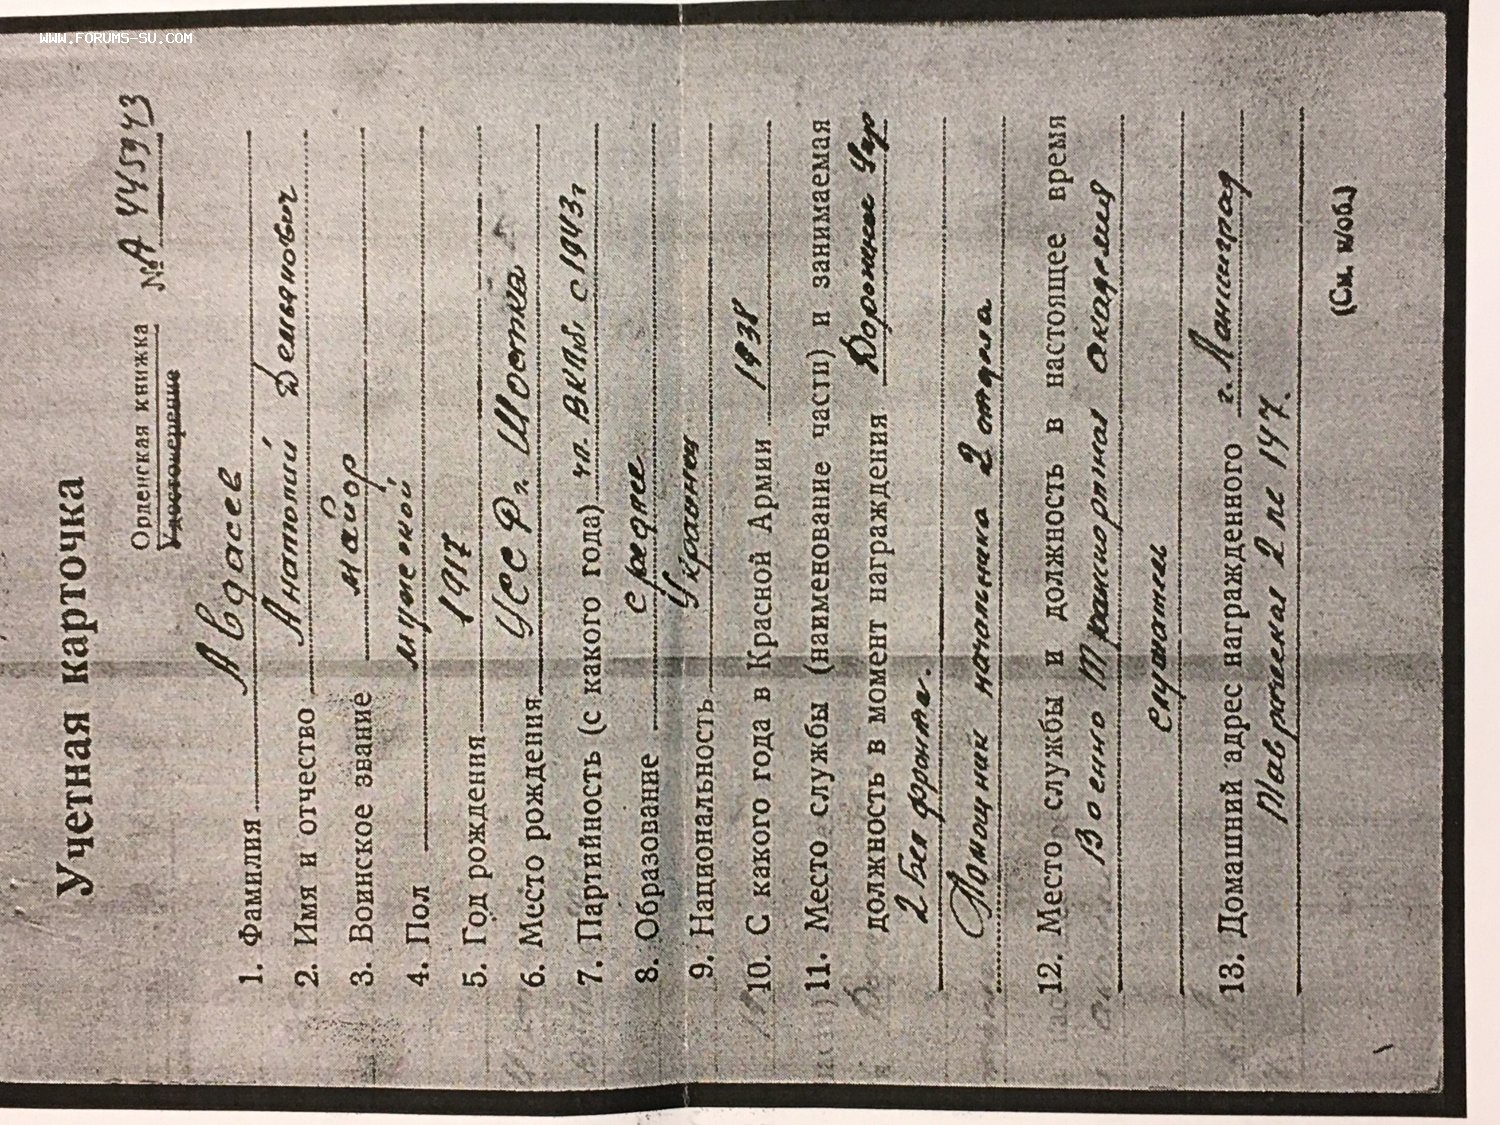 WWW.FORUMS-SU.COM
Учетная карточка
Орденская книжка
Удостоверение
№ А 445943
1. Фамилия Авдеев
2. Имя и отчество Анатолий Демьянович
3. Воинское звание майор
4. Пол мужской
5. Год рождения 1917
6. Место рождения УССР г. Шостка
7. Партийность (с какого года) чл. ВКП(б) с 1943 г
8. Образование среднее
9. Национальность Украинец
10. С какого года в Красной Армии 1938
11. Место службы (наименование части) и занимаемая
должность в момент награждения Дорожное Упр
2 Бел фронта.
Помощник начальника 2 отдела
12. Место службы и должность в настоящее время
Военно Транспортная академия
слушатель
13. Домашний адрес награжденного г. Ленинград
Таврическая 2 кв 147.
(См. н/об.)